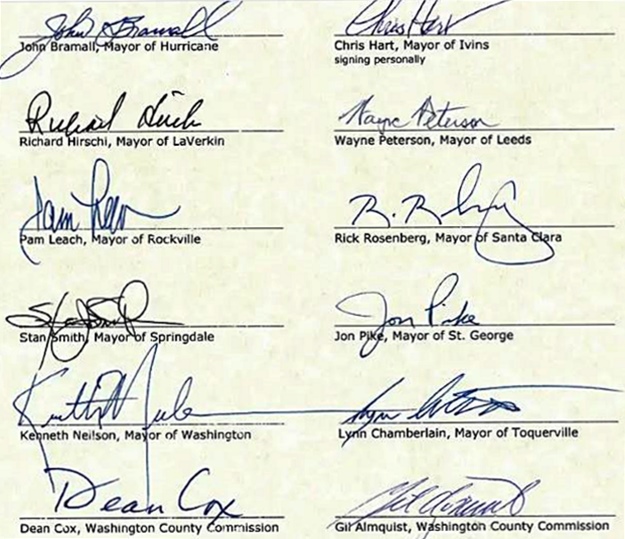 John Bramall
John Bramall, Mayor of Hurricane
Chris Hart
Chris Hart, Mayor of Ivins
signing personally
Richard Hirschi
Richard Hirschi, Mayor of LaVerkin
Wayne Peterson
Wayne Peterson, Mayor of Leeds
Pam Leach
Pam Leach, Mayor of Rockville
R. R
Rick Rosenberg, Mayor of Santa Clara
Stan Smith, Mayor of Springdale
Jon Pike
Jon Pike, Mayor of St. George
Kenneth Neilson, Mayor of Washington
Lynn Chamberlain, Mayor of Toquerville
Dean Cox
Dean Cox, Washington County Commission
Gil Almquist, Washington County Commission